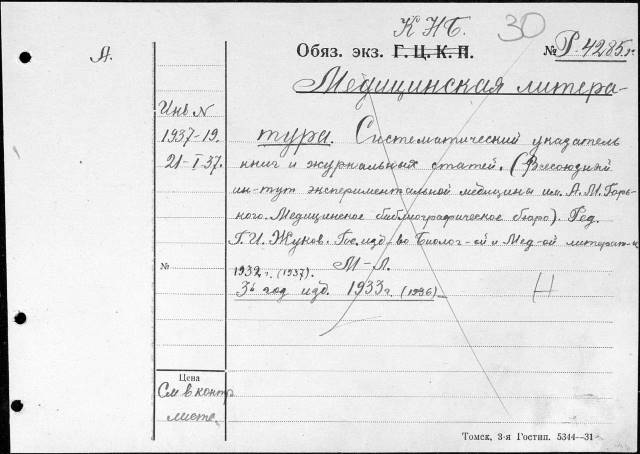 К Н Б. 30
А. Обяз. экз. Г. Ц. К. П. № Р-4285
Медицинская литера-
Инв N
1937-19. тура. Систематический указатель
21-I-37. книг и журнальных статей. (Всесоюзный
ин-тут экспериментальной медицины им. А. М. Горь-
кого. Медицинское библиографическое бюро). Ред.
Г. И. Жуков. Гос. изд-во Биолог-ой и Мед-ой литерат-ы
№ 1932 г. (1937). М-Л.
3й год изд. 1933 г. (1936) Н
Цена
См в контр
листе.
Томск, 3-я Гостип. 5344—31